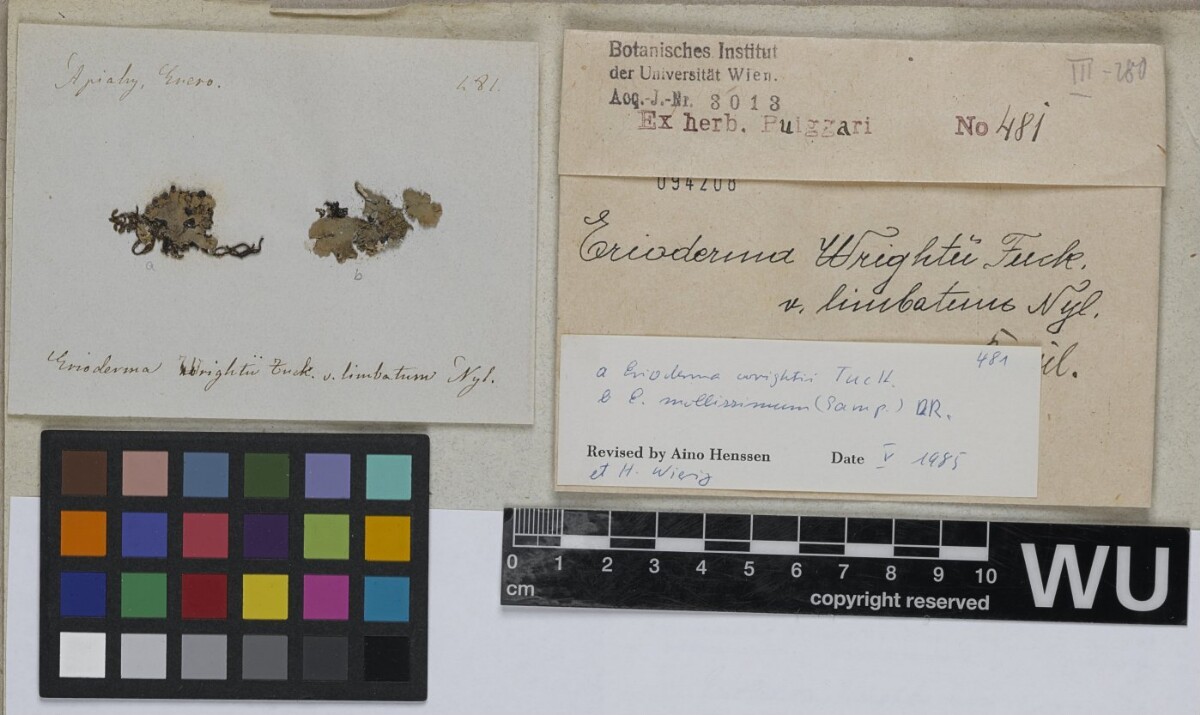 Apiahy, Enero.
481.
a
b
Erioderma Wrightii Tuck. v. limbatum Nyl.
Botanisches Institut
der Universität Wien.
Acq.-J.-Nr. 3013
III - 280
Ex herb. Puiggari
No 481
094208
Erioderma Wrightii Tuck.
v. limbatum Nyl.
481
a Erioderma wrightii Tuck.
b E. mollissimum (Samp.) DR.
Revised by Aino Henssen
Date V 1985
et H.
0 1 2 3 4 5 6 7 8 9 10
cm
copyright reserved
WU